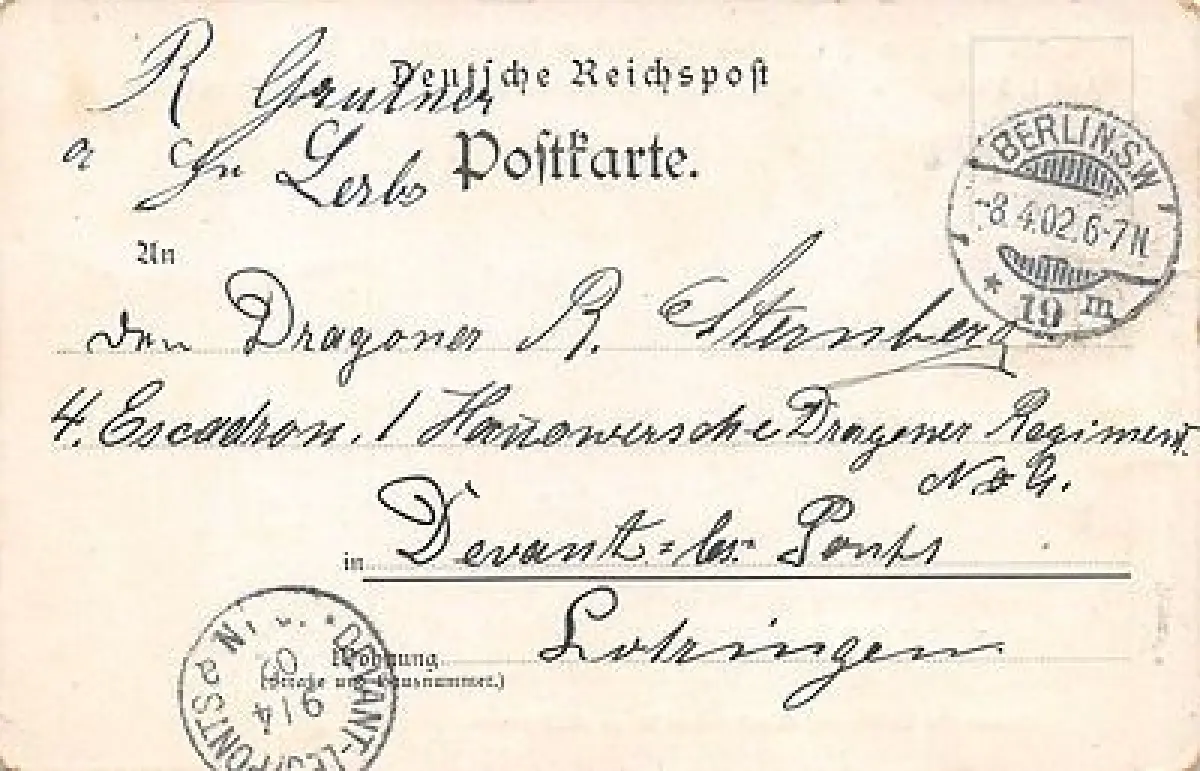 R
Deutsche Reichspost
Postkarte.
BERLIN.S.W
-8.4.02.6-7N.
* 19 m
An
den Dragoner R. Sternberg
4. Escadron. 1 Han̄oversche Dragoner Regiment.
No 9.
in Devant-les-Ponts
Lotringen
Wohnung
(Straße und Hausnummer.)
DEVANT-LES-PONTS
9/4
02
N